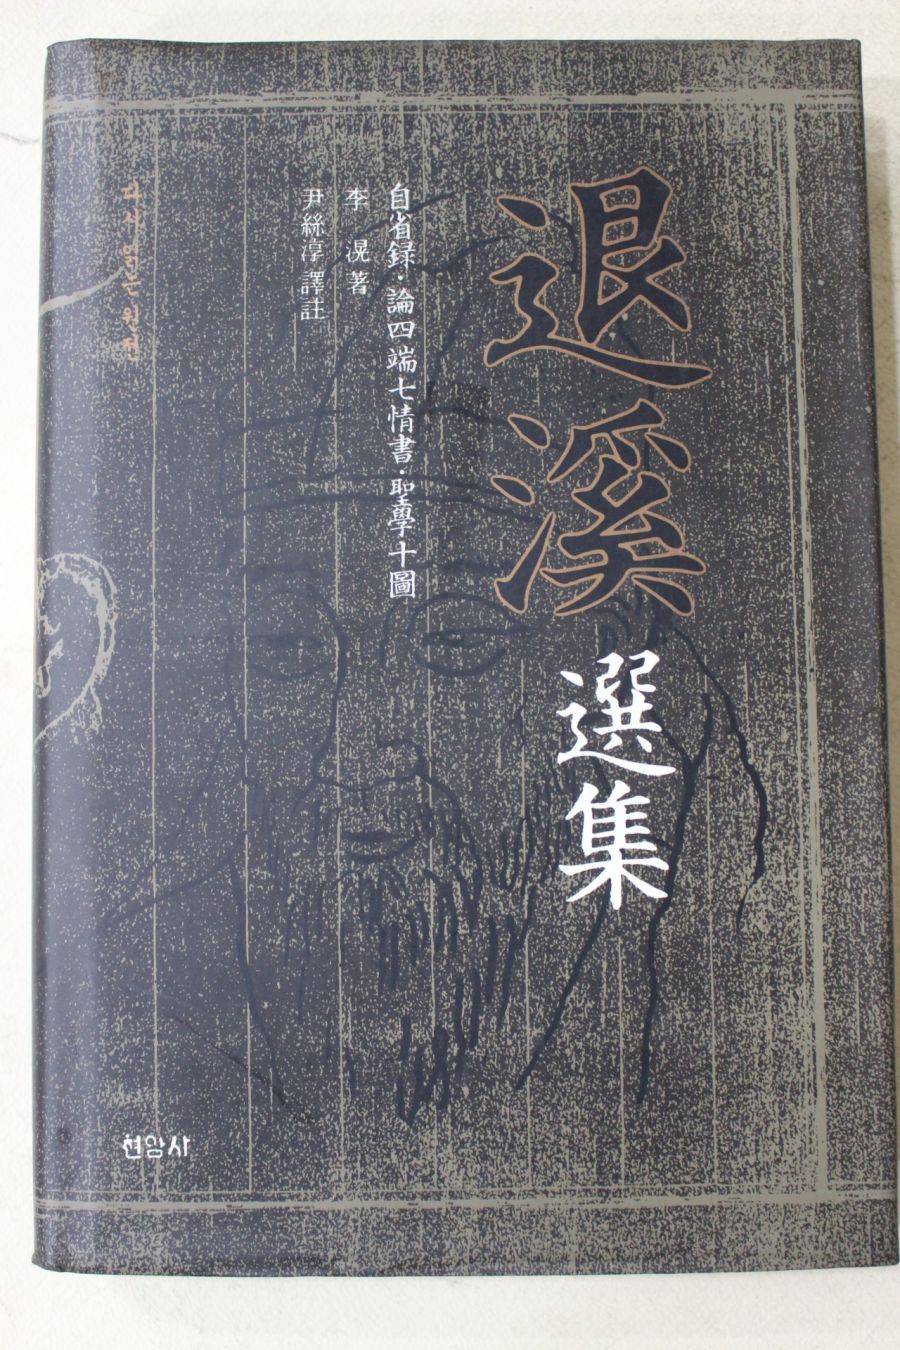 退溪
選集
自省録·論四端七情書·聖學十圖
李滉 著
尹絲淳 譯註
다시 읽는 원전
현암사